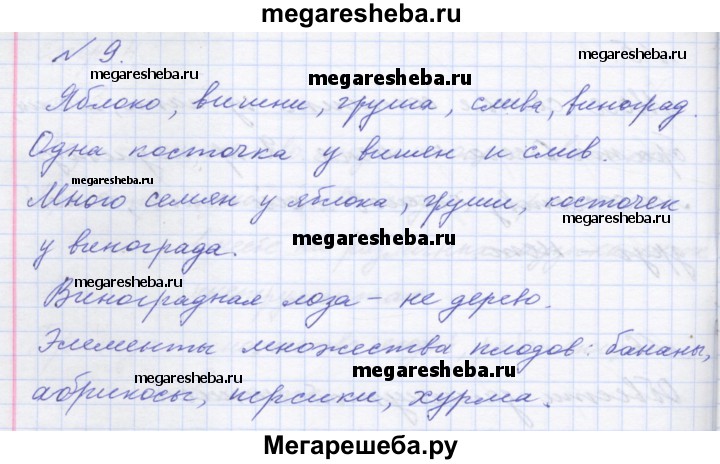 megaresheba.ru
№ 9.
megaresheba.ru
megaresheba.ru
megaresheba.ru
Яблоко, вишни, груша, слива, виноград.
Одна косточка у вишен и слив.
megaresheba.ru
Много семян у яблока, груши, косточек
megaresheba.ru
megaresheba.ru
у винограда.
megaresheba.ru
Виноградная лоза - не дерево.
Элементы множества плодов: бананы,
megaresheba.ru
megaresheba.ru
абрикосы, персики, хурма.
Мегарешеба.ру